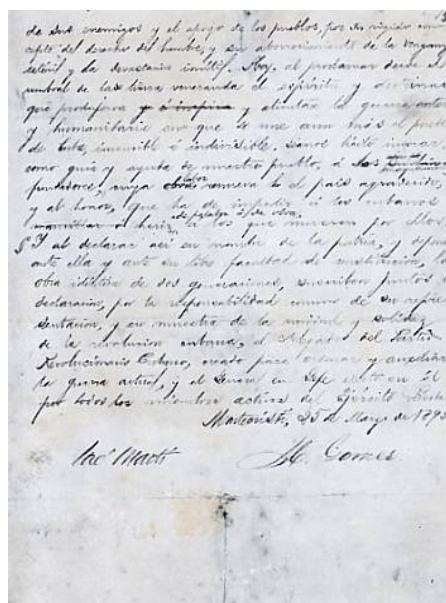 de sus enemigos y el apoyo de los pueblos, por su rígido con-
cepto del derecho del hombre, y su aborrecimiento de la venganza
estéril y la devastación inútil. Hoy, al proclamar desde el
umbral de la tierra veneranda el espíritu y doctrinas
que produjeron y alientan la guerra entera
y humanitaria en que se une aun más el pueblo
de Cuba, invencible é indivisible, séanos lícito invocar,
como guía y ayuda de nuestro pueblo, á los
fundadores, cuya labor renueva el país agradecido,
y al honor, que ha de impedir á los cubanos
herir, de palabra ó de obra, a los que mueren por ellos.
Y al declarar así en nombre de la patria, y deponer
ante ella y ante su libre facultad de constitución, la
obra idéntica de dos generaciones, suscriben juntos la
declaración, por la responsabilidad comun de su repre-
sentación, y en muestra de la unidad y solidez
de la revolución cubana, el Delegado del Partido
Revolucionario Cubano, creado para ordenar y auxiliar
la guerra actual, y el General en Jefe electo en él
por todos los miembros activos del Ejército Libertador
Montecristi, 25 de Marzo de 1895
José Martí M. Gomez